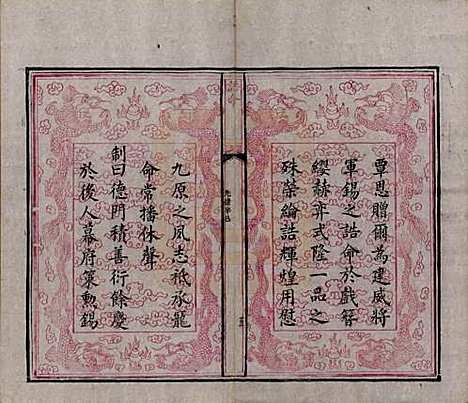 覃恩贈爾為建威將
軍錫之誥命於戲簪
纓赫奕式隆一品之
殊榮綸誥輝煌用慰
九原之夙志祗承寵
命常播休聲
制曰德門積善衍餘慶
於後人幕府策勳錫